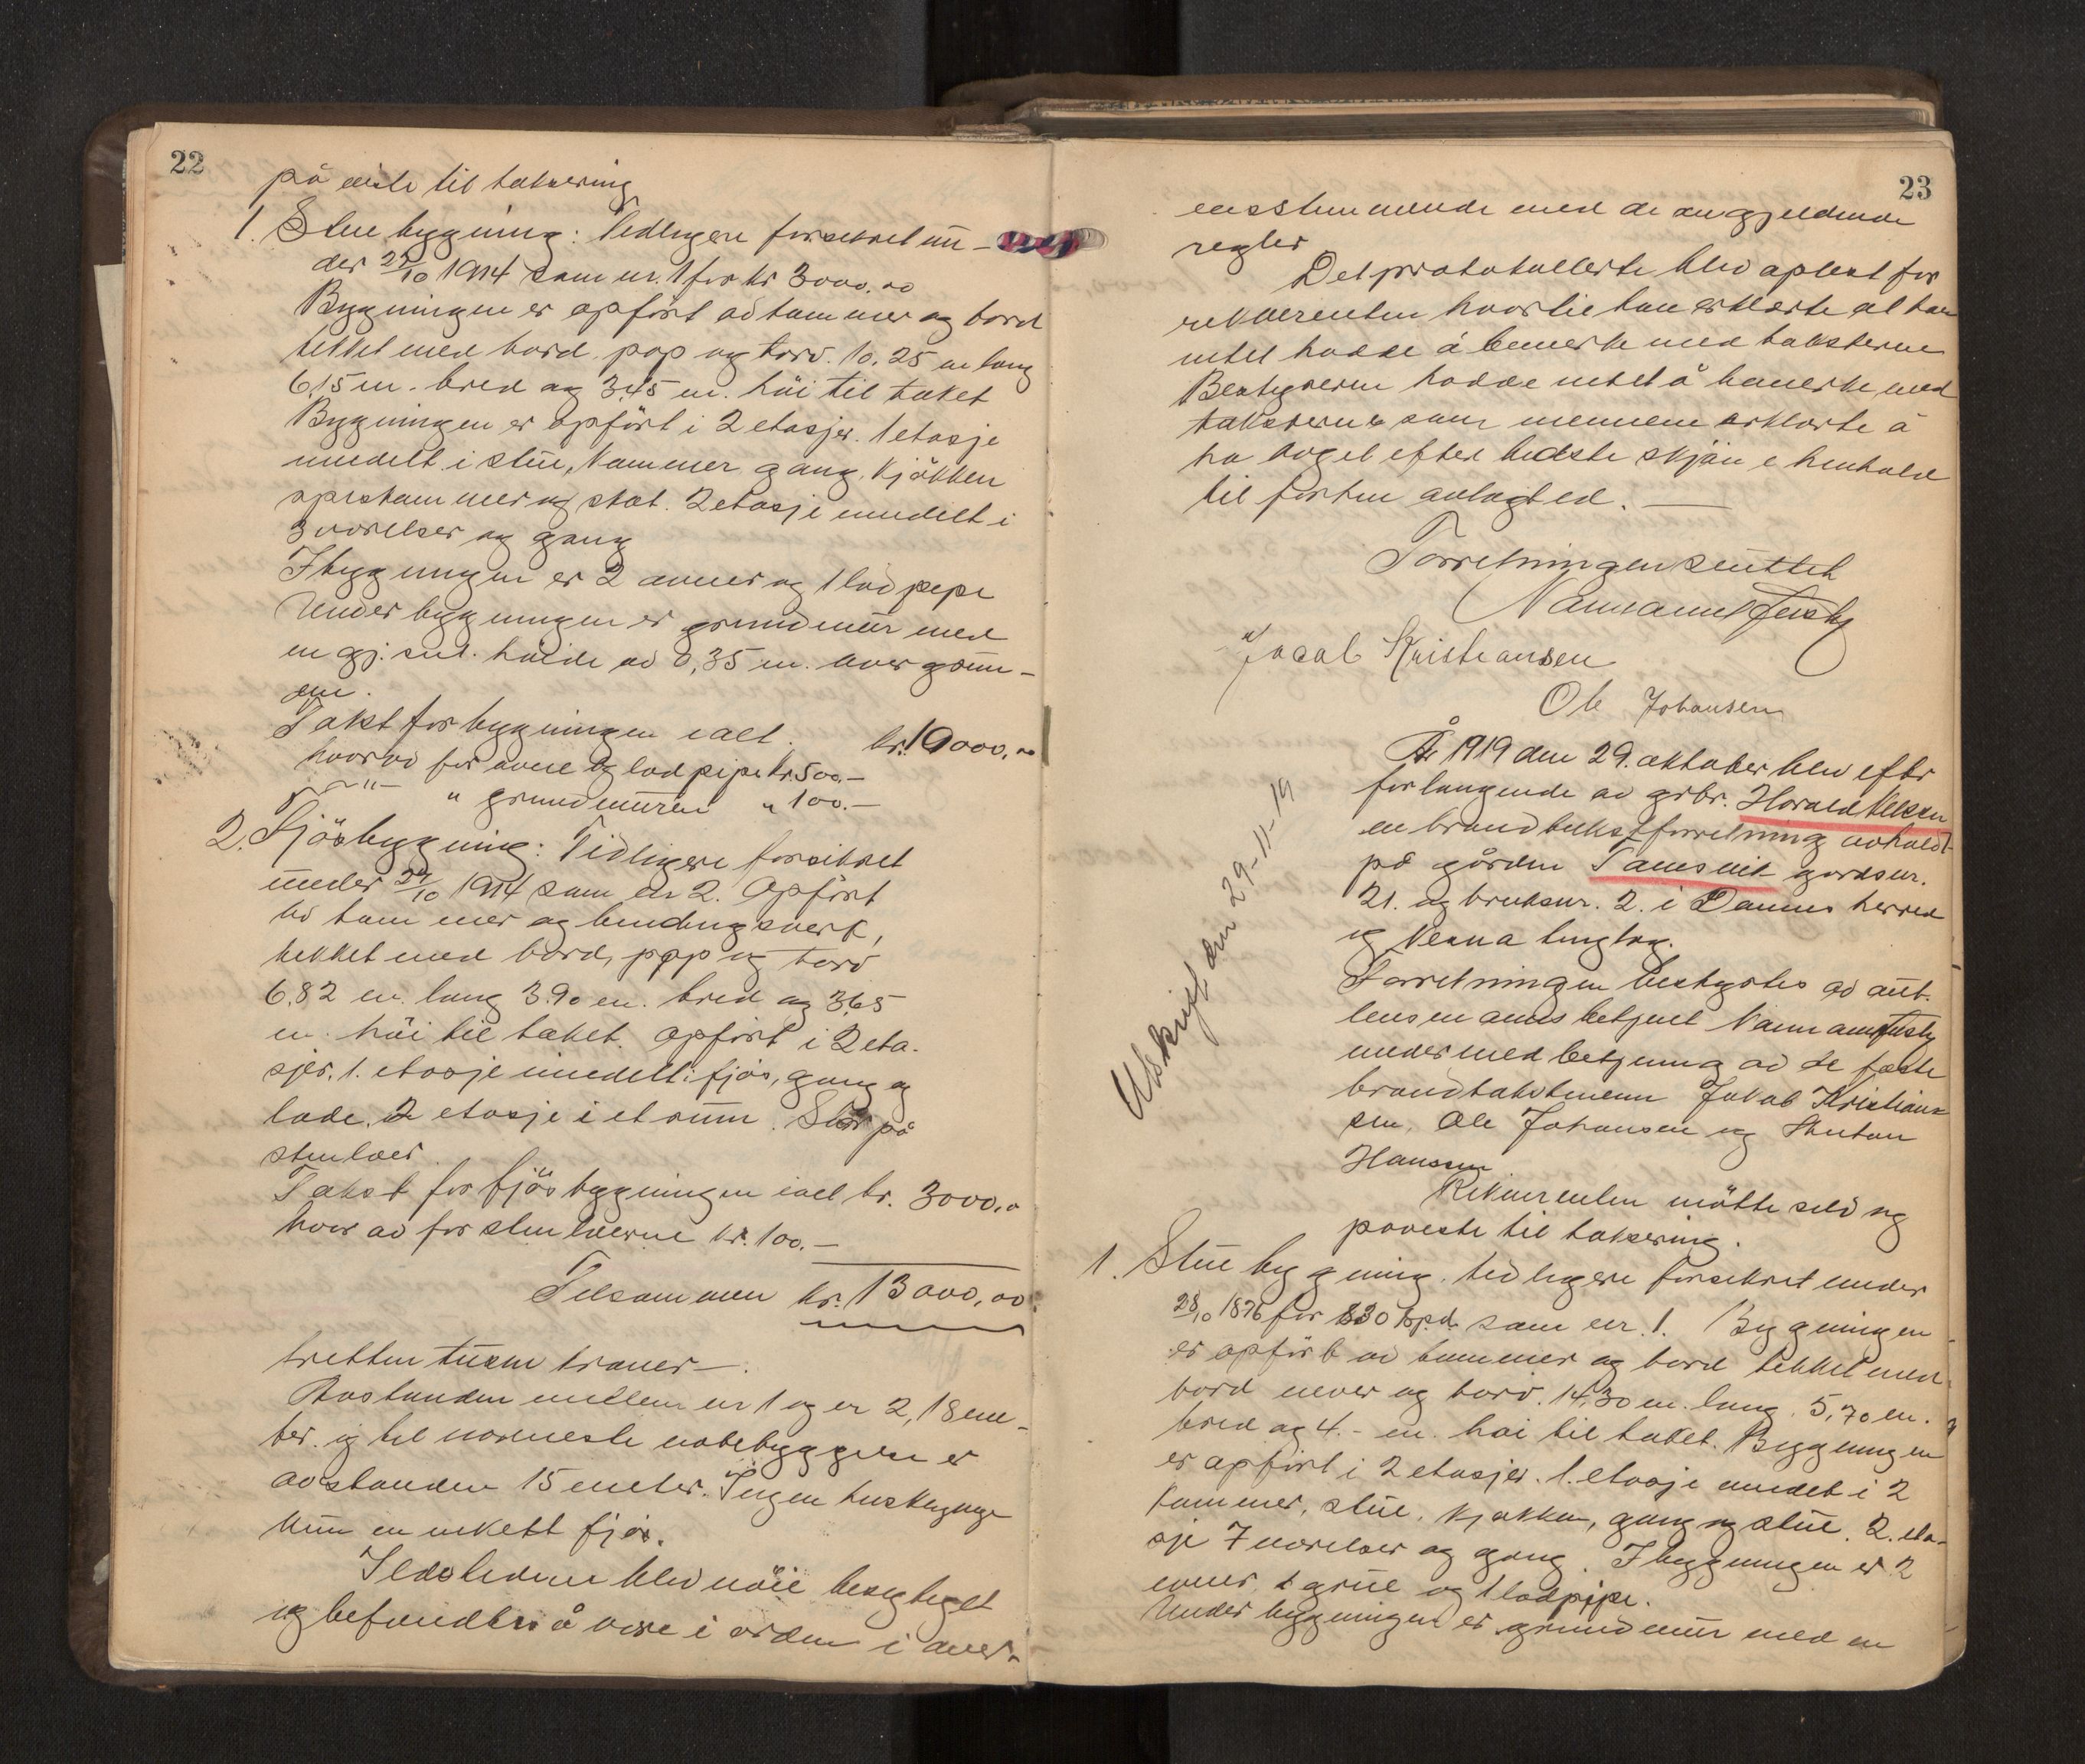 22
på viste til taksering
1. Stuebygning: Tidligere forsikret un-
der 27/10 1914 som nr. 1 for kr 3000.00
Bygningen er opført av tømmer og bord
tekket med bord, pap og torv. 10,25 m lang
6,15 m. bred og 3,45 m. høi til taket
Bygningen er opført i 2 etasjer. 1 etasje
inndelt i stue, kammer gang, kjøkken
spiskammer og skot. 2 etasje inndelt i
3 værelser og gang
I bygningen er 2 ovner og 1 lod pipe
Under bygningen er grundmur med
en gj.snl. høide av 0,35 m. over grun-
en.
Takst for bygningen ialt. kr. 10000,00
hvorav for ovne og lodpipe kr. 500.-
-"- " grundmuren " 100.-
2. Fjøsbygning: Tidligere forsikret
under 27/10 1914 som nr 2. Opført
av tømmer og bindingsverk,
tekket med bord, pap og torv
6.82 m. lang 3.90 m. bred og 3,65
m. høi til taket. Opført i 2 eta-
sjer. 1. etasje inndelt i fjøs, gang og
lade. 2 etasje i et rum. Står på
stenloer.
Takst for fjøsbygningen ialt kr. 3000,0
hvor av for stenloerne kr. 100.-
Tilsammen kr. 13000,00.
tretten tusen kroner-.
Avstanden mellem nr 1 og nr 2, 18 me-
ter. og til nærmeste nabobyggelse er
avstanden 15 meter. Ingen husklynge
kun en enkelt fjøs.
Ildstederne blev nøie besigtiget
og befundtes å være i orden i over-
23
ensstemmende med de angjeldende
regler
Det protokollerte blev oplest for
rekvirenten hvortil han erklærte at han
intet hadde å bemerke med taksterne
Bestyreren hadde intet å bemerke med
taksterne som mennene erklærte å
ha avget efter bedste skjøn i henhold
til forhen avlagt ed.
Forretningen sluttet
Jacob Kristiansen
Ole Johansen
Utskrift den 29-11-19
År 1919 den 29. oktober blev efter
forlangende av grbr. Harald Nilsen
en brandtakstforretning avholdt
på gården Tamsvik gårdsnr.
21. og bruksnr. 2. i Dønnes herred
og Nesna tinglag.
Forretningen bestyrtes av aut.
lensmannsbetjent
under med betjening av de faste
brandtakstmenn Jakob Kristian-
sen, Ole Johansen og Anton
Hanssen
Rekvirenten møtte selv og
påviste til taksering.
1. Stuebygning. tidligere forsikret under
28/10 1876 for 830 spd. som nr. 1. Bygningen
er opført av tømmer og bord tekket med
bord never og torv. 14,30 m. lang, 5,70 m.
bred og 4.- m. høi til taket. Bygningen
er opført i 2 etasjer. 1. etasje inndelt i 2
kammer, stue, kjøkken, gang og stue. 2. eta-
sje 7 værelser og gang. I bygningen er 2
ovner, 1 grue og 1 lodpipe.
Under bygningen er grundmur med en